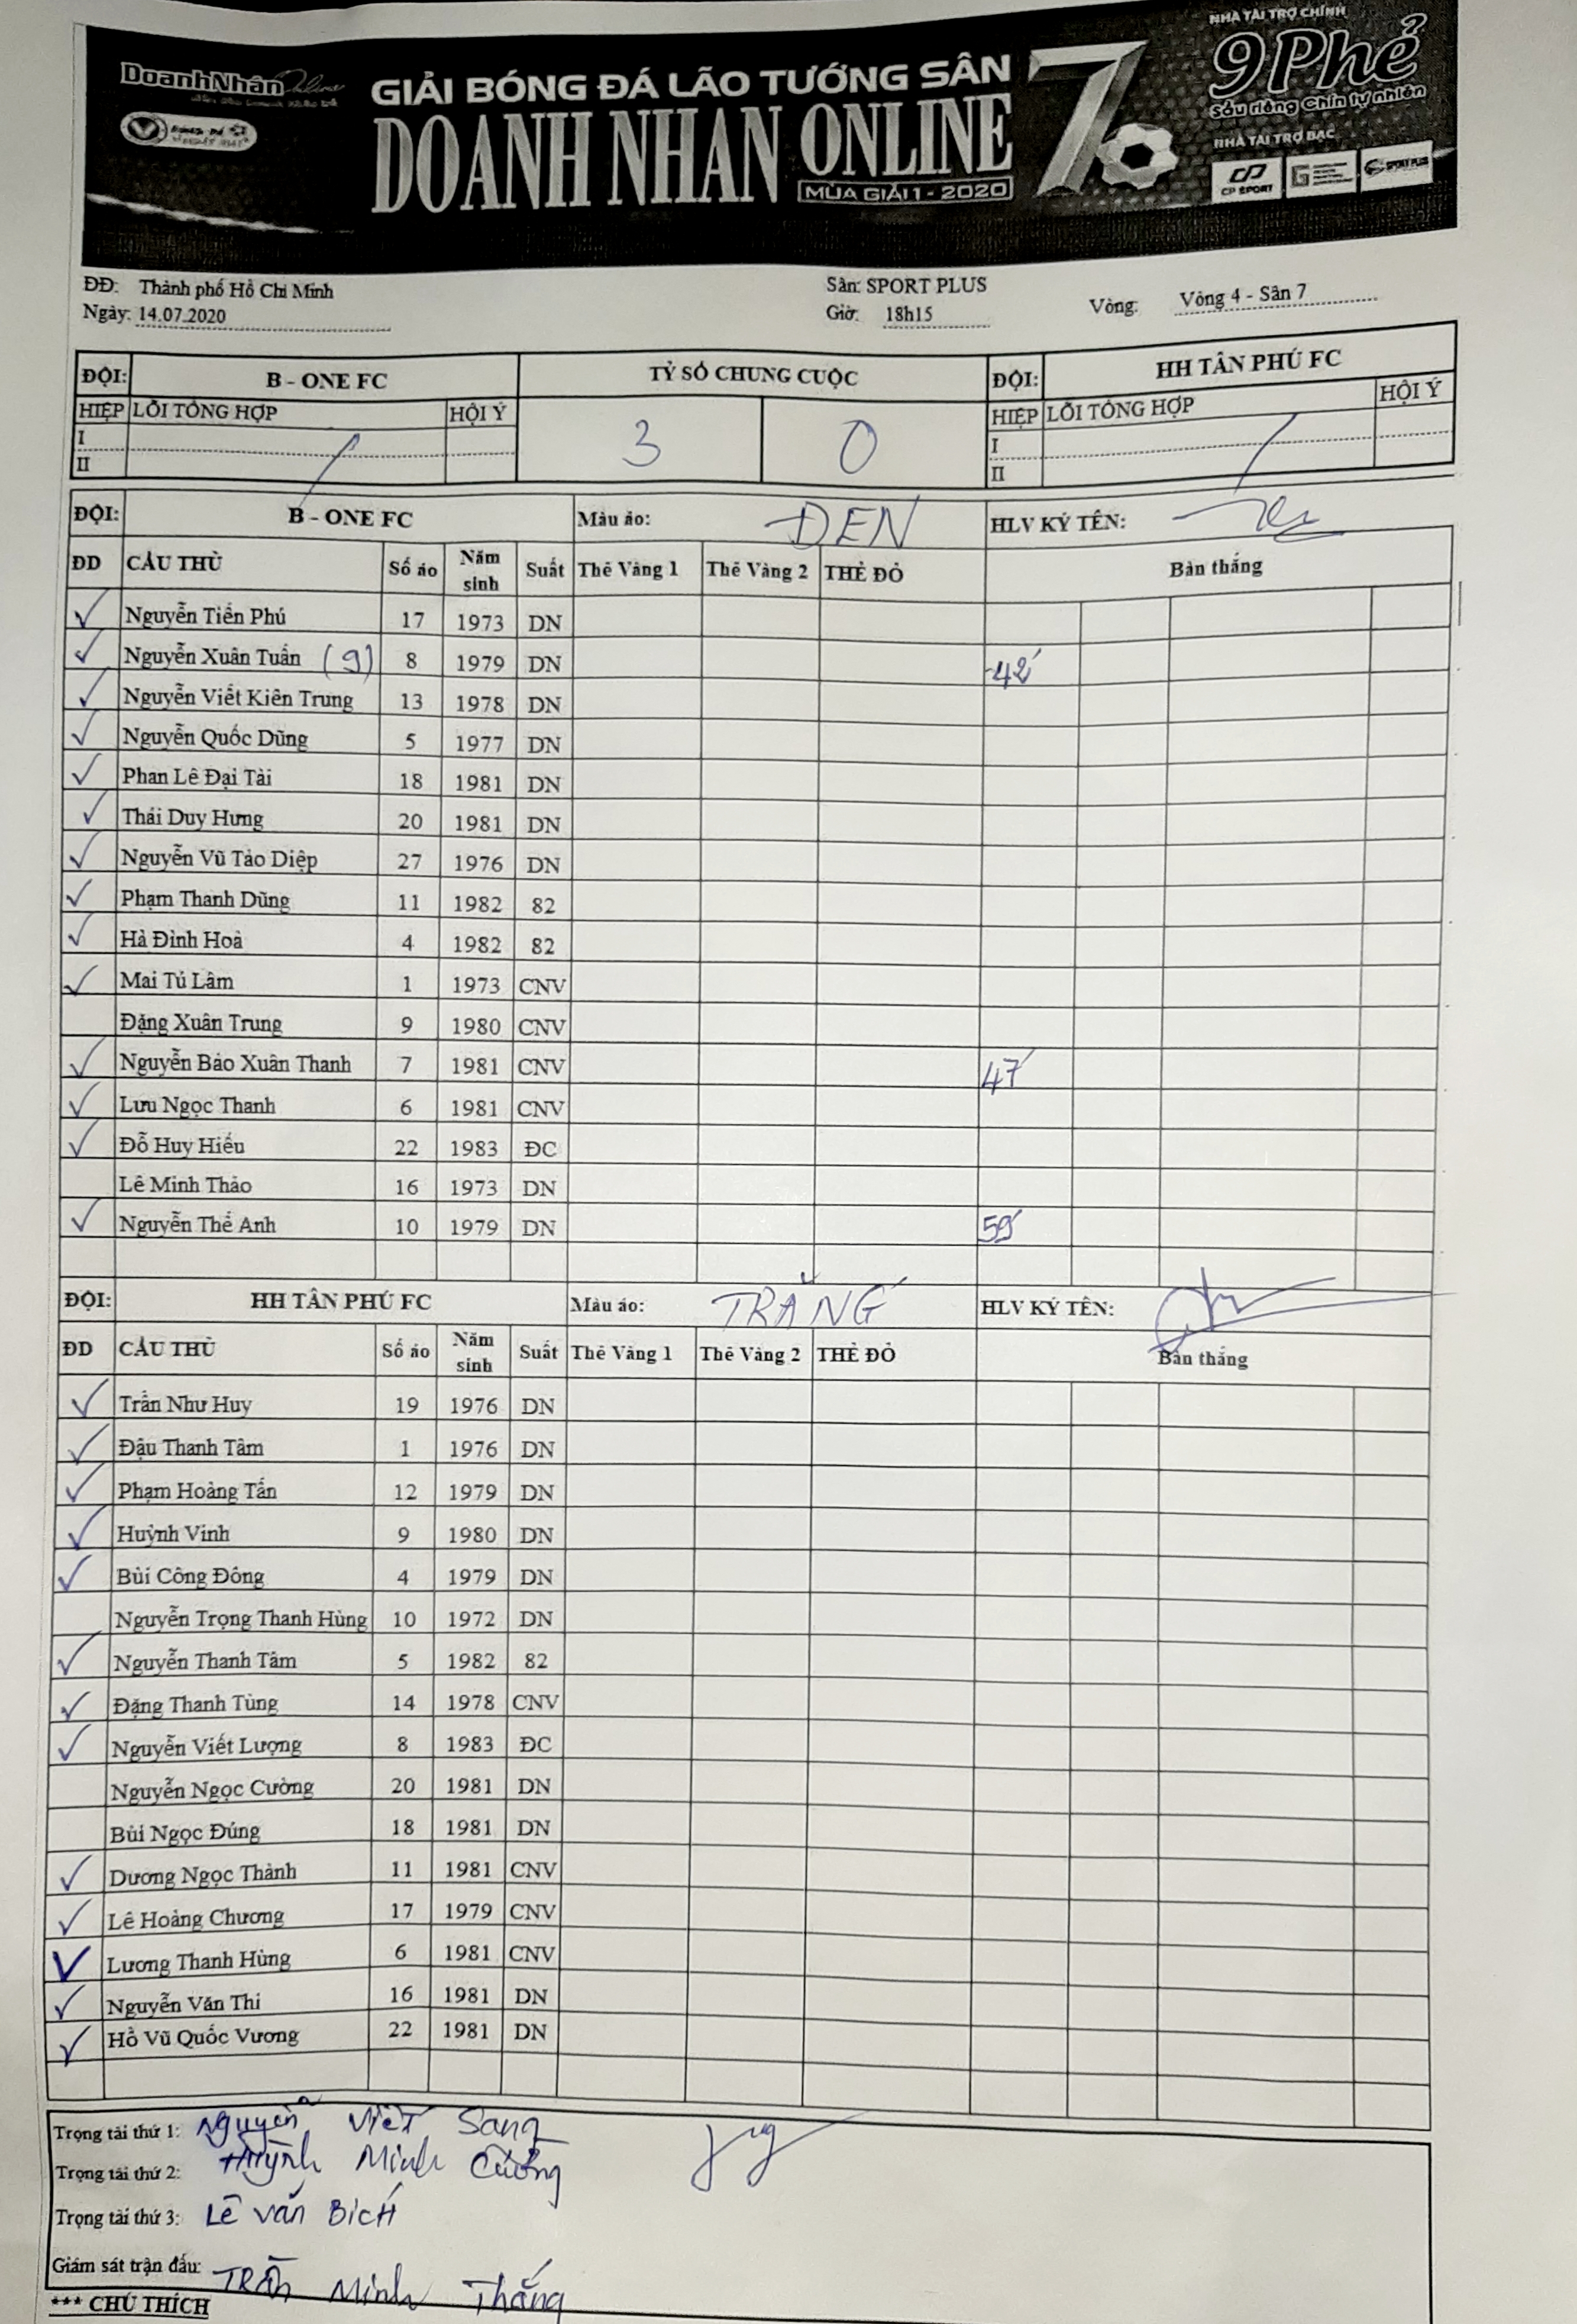 DoanhNhân Online
GIẢI BÓNG ĐÁ LÃO TƯỚNG SÂN 7
DOANH NHAN ONLINE
MÙA GIẢI 1 - 2020
NHÀ TÀI TRỢ CHÍNH
9 Phẻ
Sầu riêng Chín tự nhiên
NHÀ TÀI TRỢ BẠC
CP SPORT
SPORT PLUS
ĐĐ: Thành phố Hồ Chí Minh Sân: SPORT PLUS
Ngày: 14.07.2020 Giờ: 18h15 Vòng: Vòng 4 - Sân 7
ĐỘI: B - ONE FC TỶ SỐ CHUNG CUỘC ĐỘI: HH TÂN PHÚ FC
HIỆP LỖI TỔNG HỢP HỘI Ý 3 0 HIỆP LỖI TỔNG HỢP HỘI Ý
I I
II II
ĐỘI: B - ONE FC Màu áo: ĐEN HLV KÝ TÊN:
ĐD CẦU THỦ Số áo Năm sinh Suất Thẻ Vàng 1 Thẻ Vàng 2 THẺ ĐỎ Bàn thắng
✓ Nguyễn Tiến Phú 17 1973 DN
✓ Nguyễn Xuân Tuấn (9) 8 1979 DN 42'
✓ Nguyễn Viết Kiên Trung 13 1978 DN
✓ Nguyễn Quốc Dũng 5 1977 DN
✓ Phan Lê Đại Tài 18 1981 DN
✓ Thái Duy Hưng 20 1981 DN
✓ Nguyễn Vũ Tảo Diệp 27 1976 DN
✓ Phạm Thanh Dũng 11 1982 82
✓ Hà Đình Hoà 4 1982 82
✓ Mai Tú Lâm 1 1973 CNV
Đặng Xuân Trung 9 1980 CNV
✓ Nguyễn Bảo Xuân Thanh 7 1981 CNV 47'
✓ Lưu Ngọc Thanh 6 1981 CNV
✓ Đỗ Huy Hiếu 22 1983 ĐC
Lê Minh Thảo 16 1973 DN
✓ Nguyễn Thế Anh 10 1979 DN 59'
ĐỘI: HH TÂN PHÚ FC Màu áo: TRẮNG HLV KÝ TÊN:
ĐD CẦU THỦ Số áo Năm sinh Suất Thẻ Vàng 1 Thẻ Vàng 2 THẺ ĐỎ Bàn thắng
✓ Trần Như Huy 19 1976 DN
✓ Đậu Thanh Tâm 1 1976 DN
✓ Phạm Hoàng Tấn 12 1979 DN
✓ Huỳnh Vinh 9 1980 DN
✓ Bùi Công Đông 4 1979 DN
Nguyễn Trọng Thanh Hùng 10 1972 DN
✓ Nguyễn Thanh Tâm 5 1982 82
✓ Đặng Thanh Tùng 14 1978 CNV
✓ Nguyễn Viết Lượng 8 1983 ĐC
Nguyễn Ngọc Cường 20 1981 DN
Bùi Ngọc Đúng 18 1981 DN
✓ Dương Ngọc Thành 11 1981 CNV
✓ Lê Hoàng Chương 17 1979 CNV
✓ Lương Thanh Hùng 6 1981 CNV
✓ Nguyễn Văn Thi 16 1981 DN
✓ Hồ Vũ Quốc Vương 22 1981 DN
Trọng tài thứ 1: Nguyễn Viết Sang
Trọng tài thứ 2: Huỳnh Minh Cường
Trọng tài thứ 3: Lê Văn Bích
Giám sát trận đấu: Trần Minh Thắng
*** CHÚ THÍCH